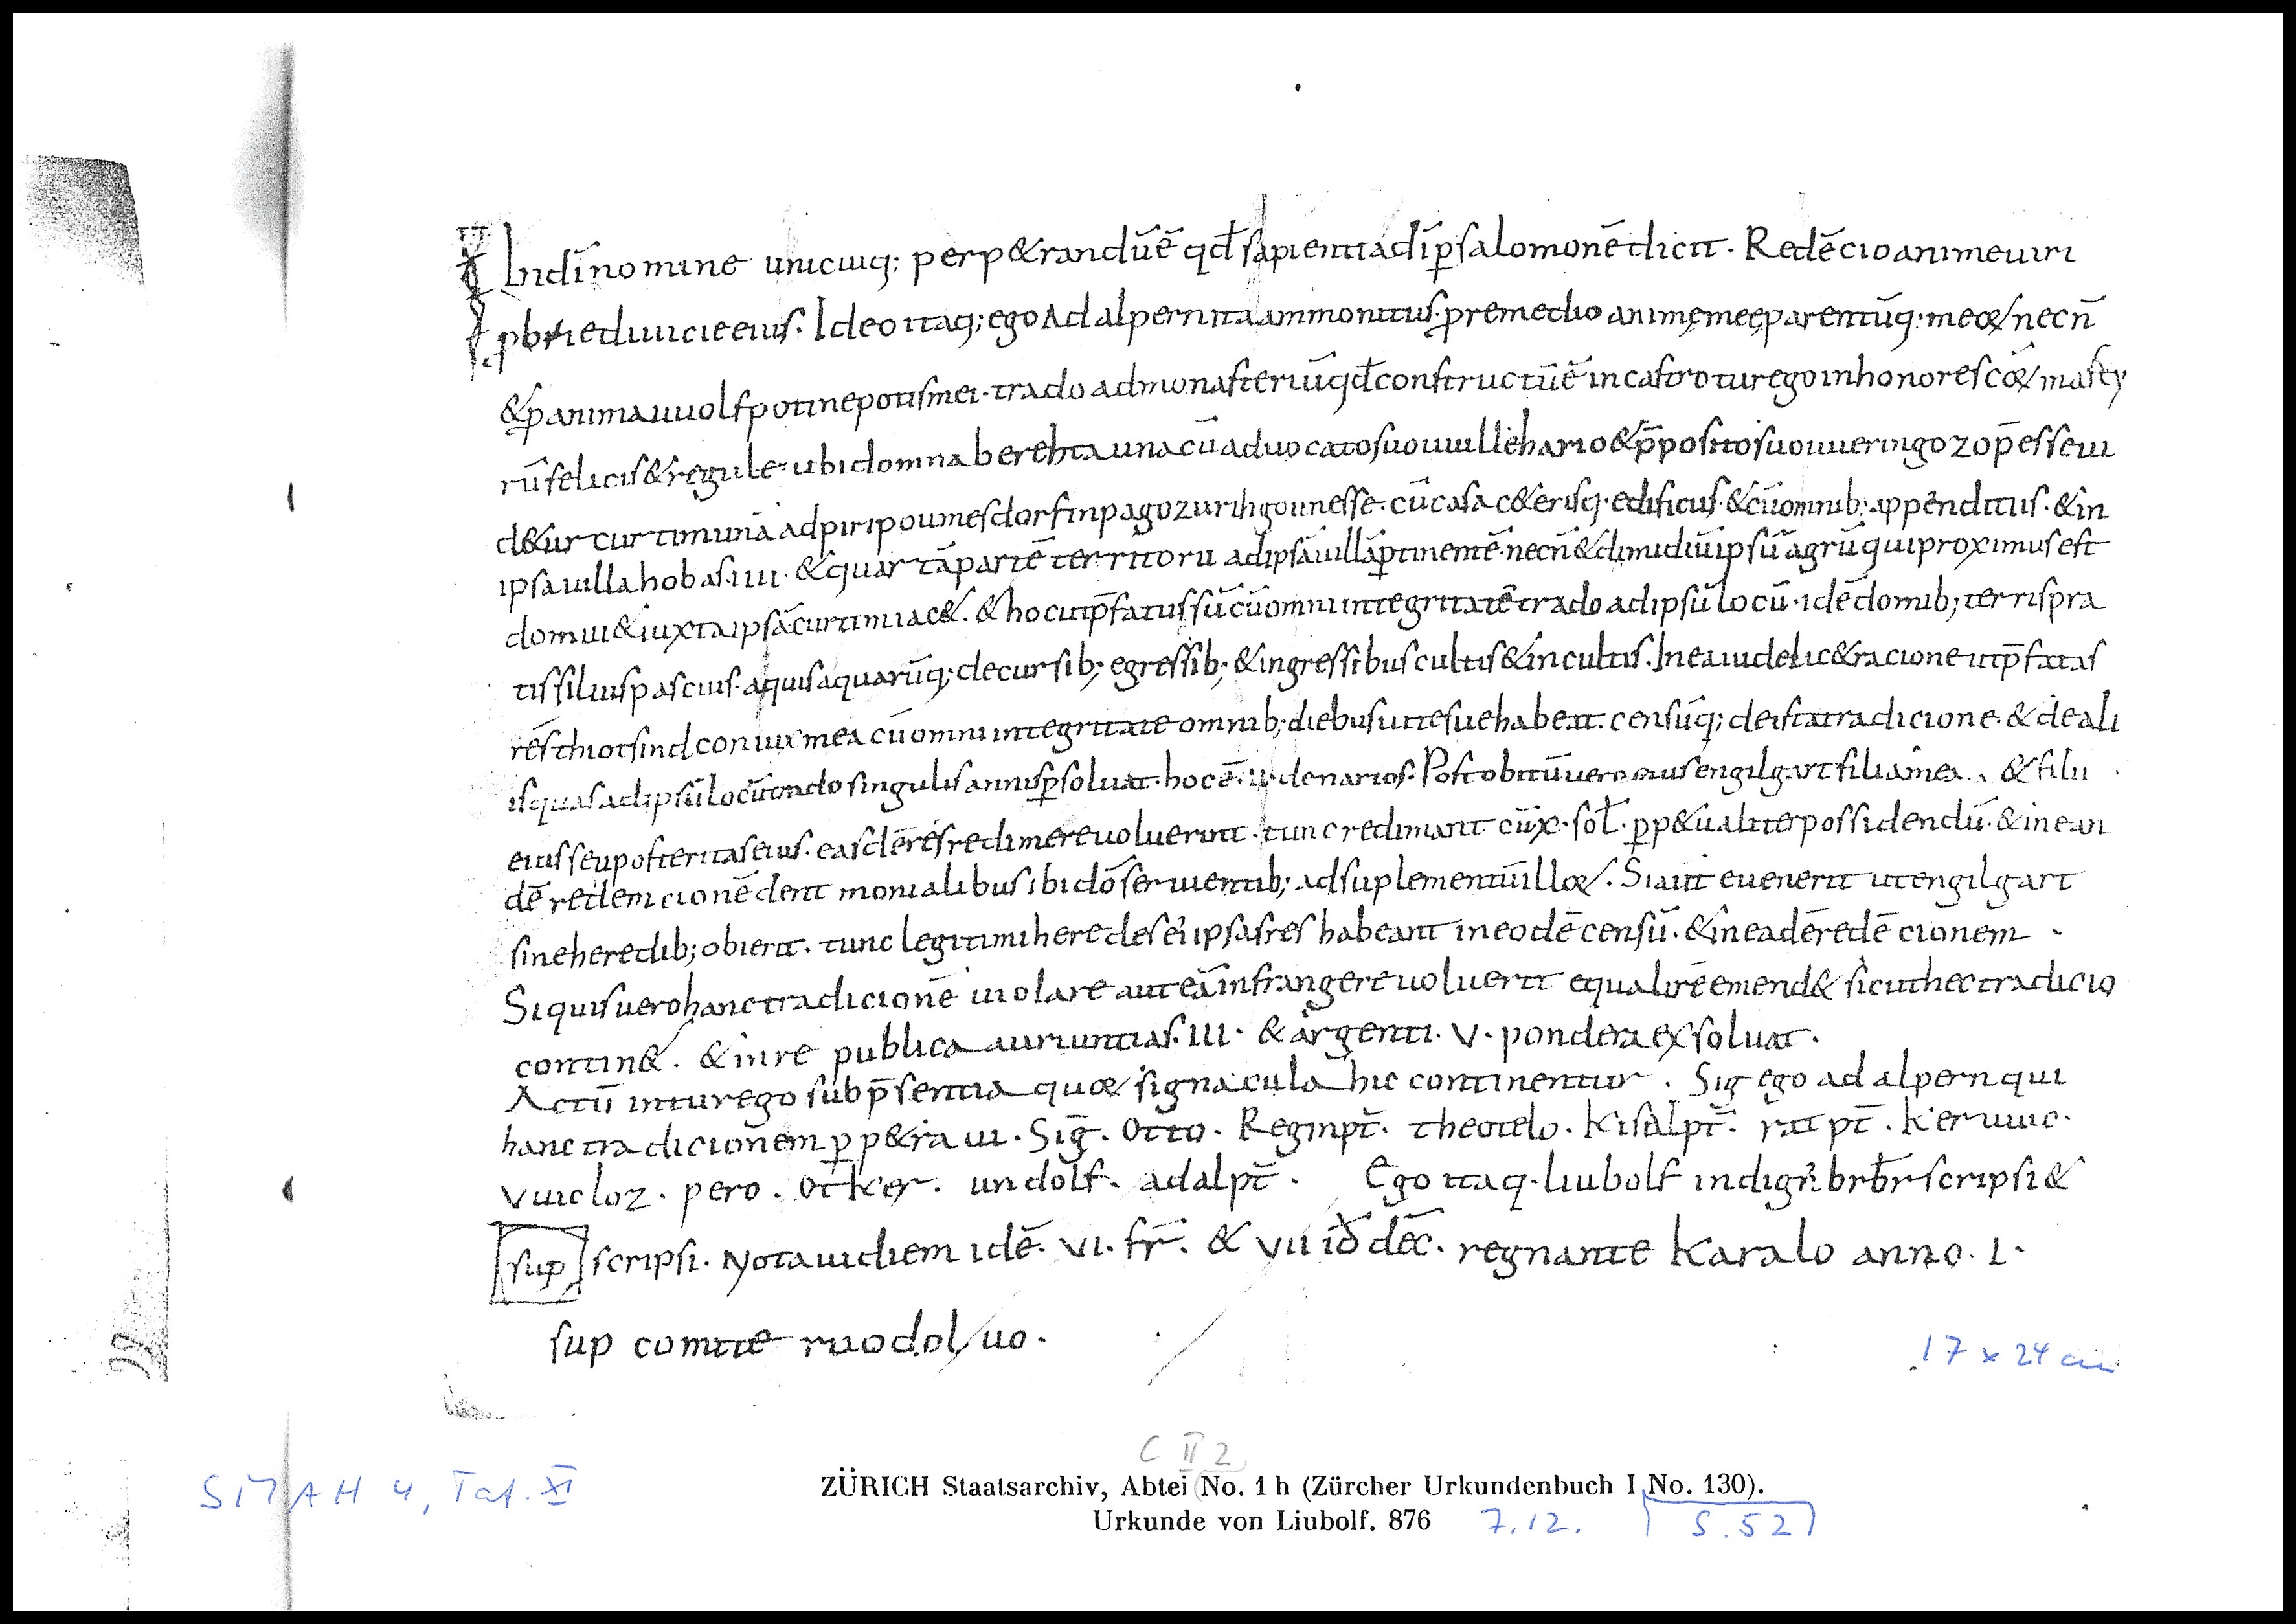 In dī nomine unicuiq; perp&randū ē qđ sapientia dī p salomonē dicit. Redēcio anime uiri
ꝓprie diuicie eius. Ideo itaq; ego Adalpern ita ammonitus. ꝓ remedio animę meę parentūq; meoꝝ necn̄
& ꝓ anima uuolfpoti nepotis mei. trado ad monasteriū qđ constructū ē in castro turego in honore scōꝝ marty
rū felicis & regule. ubi domna berehta una cū aduocato suo uuillehario & p̄posito suo uueringozo p̄esse ui
d&ur curtim unā ad piripoumesdorf in pago zurihgouuesse. cū casa c&erisq; edificiis. & cū omnib; appendiciis. & in
ipsa uilla hobas. iiii. & quartā partē territorii ad ipsā uillā ptinentē. necn̄ & dimidiū ipsū agrū qui proximus est
domui & iuxta ipsā curtim iac&. & hoc ut p̄fatus sū cū omni integritatē trado ad ipsū locū. idē domib; terris pra
tis siluis pascuis. aquis aquarūq; decursib; egressib; & ingressibus cultis & incultis. In ea uidelic& racione ut p̄fatas
rēs thiotsind coniux mea cū omni integritate omnib; diebus uite sue habeat. censūq; de ista tradicione. & de ali
is quas ad ipsū locū trado singulis annis psoluat. hoc ē. ii. denarios. Post obitū uero eius engilgart filia mea. & filii
eius seu posteritas eius. eas dē rēs redimere uoluerint. tunc redimant cū x. soł. pp&ualiter possidendū. & in ean
dē redemcionē dent monialibus ibi dō seruientib; ad suplementū illoꝝ. Si aūt euenerit ut engilgart
sine heredib; obierit. tunc legitimi heredes ei ipsas res habeant in eodē censū. & in eadē redēcionem.
Si quis uero hanc tradicionē uiolare aut eā infrangere uoluerit equalirē emend& sicut hec tradicio
contin&. & in re publica auri untias. III. & argenti. V. pondera exsoluat.
Actū in turego sub p̄sentia quoꝝ signacula hic continentur. Sig ego adalpern qui
hanc tradicionem pp&raui. Sig̅. Otto. Reginpt̄. theotelo. Kisalpt̄. ratpt̄. Keruuic.
Vuicloz. pero. Otker. undolf. adalpt̄. Ego itaq. liubolf indigr̄ br̄ƀr scripsi &
sup scripsi. Notaui diem idē. VI. fr̄. & VII iđ dēc. regnante Karalo anno. I.
sup comite ruodoluo.
17 x 24 cm
C II 2
SMAH 4, Taf. XI
ZÜRICH Staatsarchiv, Abtei (No. 1 h (Zürcher Urkundenbuch I No. 130).
Urkunde von Liubolf. 876 7.12. S. 52